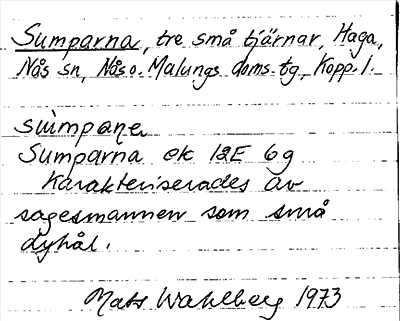 Sumparna, tre små tjärnar, Haga,
Nås sn, Nås o. Malungs doms. tg, Kopp. l.
sùimpana
Sumparna ek 12E 6g
Karakteriserades av
sagesmannen som små
dyhål.
Mats Wahlberg 1973